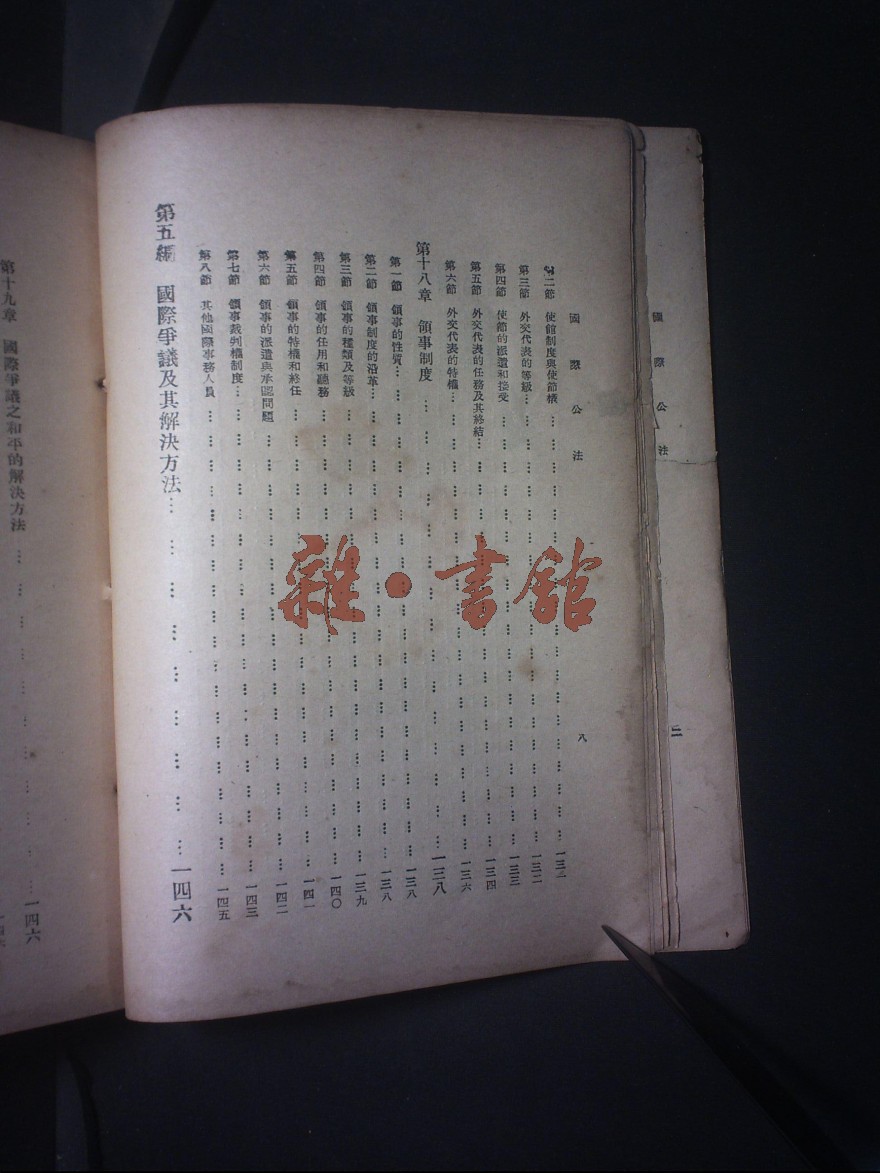 國際公法
二
國際公法
八
第二節 使館制度與使節權………一三二
第三節 外交代表的等級………一三二
第四節 使節的派遣和接受………一三三
第五節 外交代表的任務及其終結………一三四
第六節 外交代表的特權………一三六
第十八章 領事制度………一三八
第一節 領事的性質………一三八
第二節 領事制度的沿革………一三八
第三節 領事的種類及等級………一三九
第四節 領事的任用和職務………一四〇
第五節 領事的特權和終任………一四一
第六節 領事的派遣與承認問題………一四二
第七節 領事裁判權制度………一四三
第八節 其他國際事務人員………一四五
第五編 國際爭議及其解決方法………一四六
第十九章 國際爭議之和平的解決方法………一四六
雜·書館